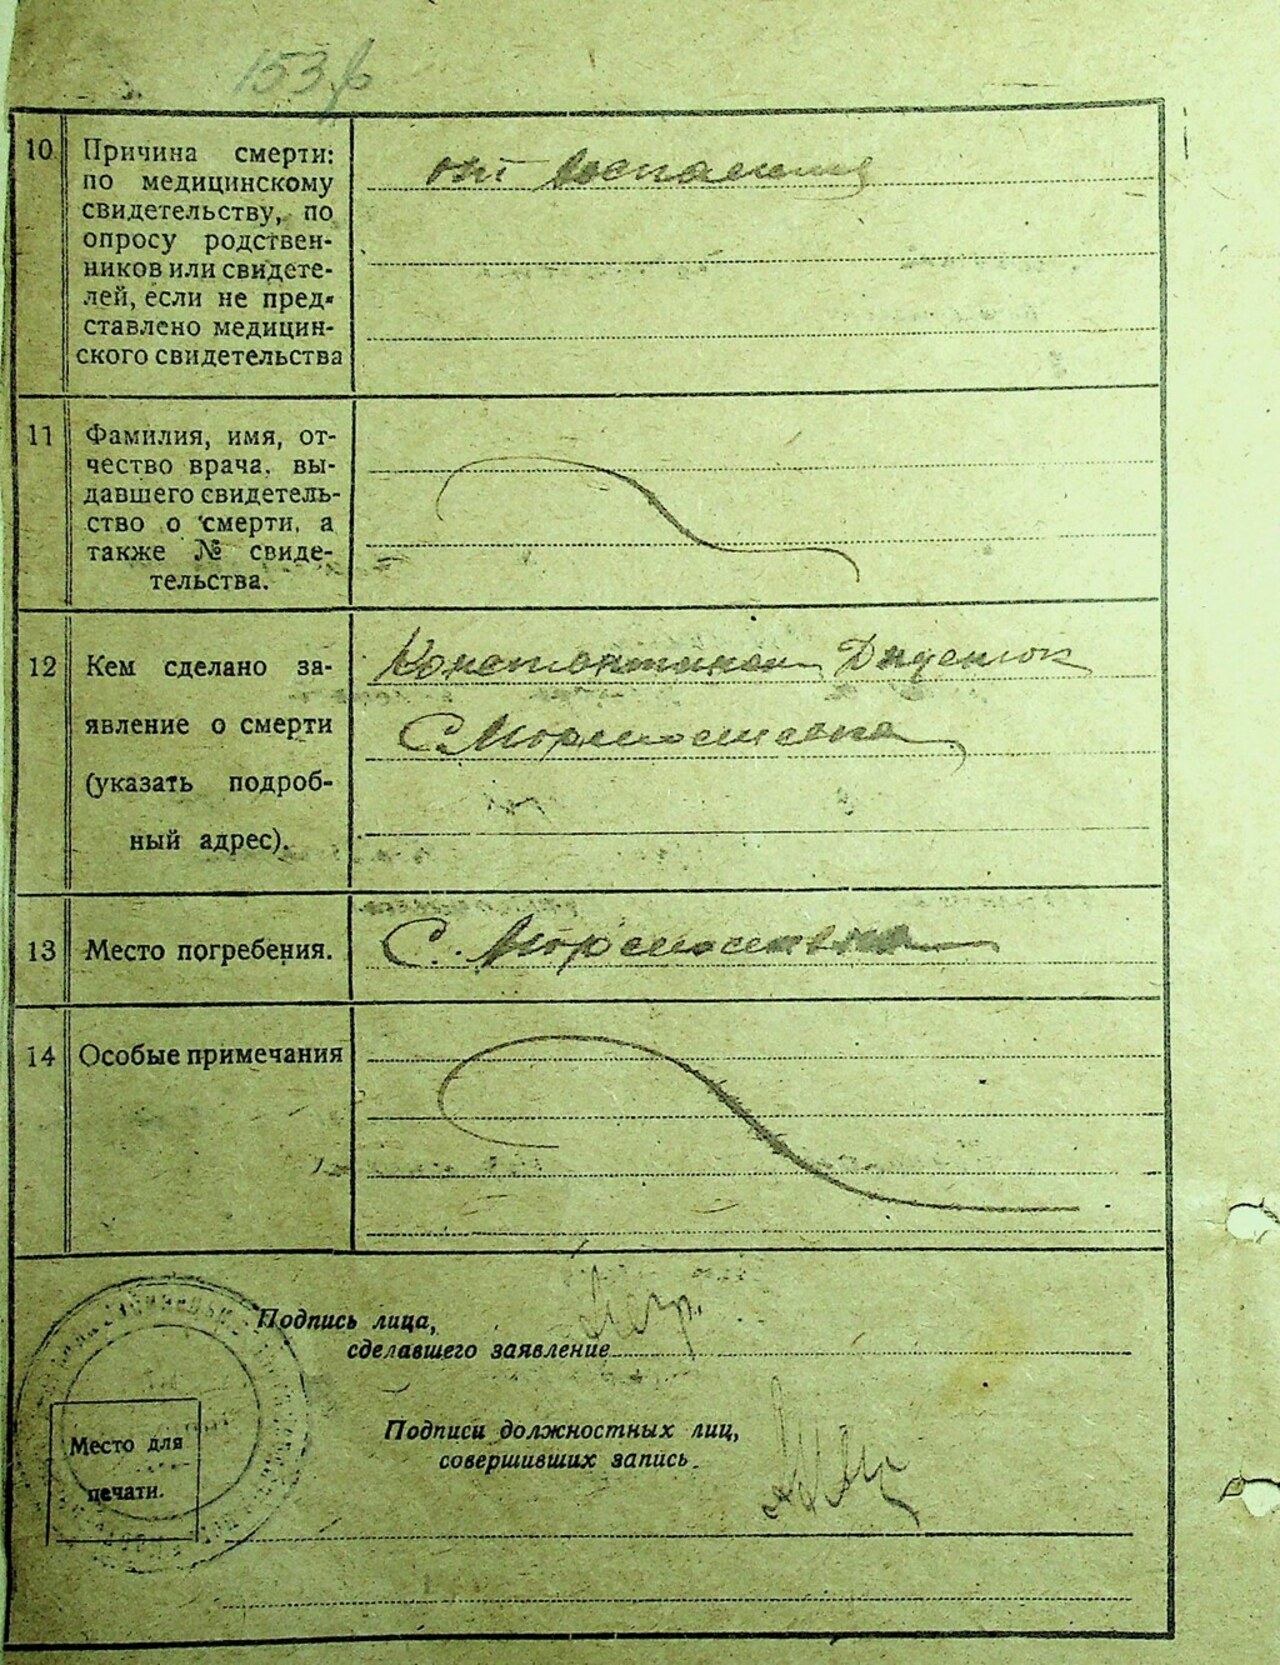 10 Причина смерти:
по медицинскому
свидетельству, по
опросу родствен-
ников или свидете-
лей, если не пред-
ставлено медицин-
ского свидетельства
от воспаления
11 Фамилия, имя, от-
чество врача, вы-
давшего свидетель-
ство о смерти, а
также № свиде-
тельства.
12 Кем сделано за-
явление о смерти
(указать подроб-
ный адрес).
Диденюк
С.
13 Место погребения.
С.
14 Особые примечания
Подпись лица,
сделавшего заявление
Подписи должностных лиц,
совершивших запись.
Место для
печати.